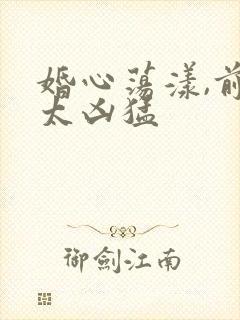 婚心荡漾,前
太凶猛
御劍江南